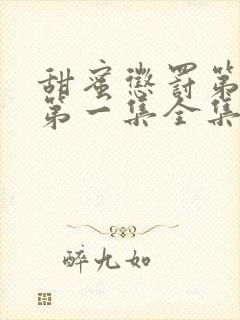 甜蜜惩罚第
第一集全集
醉九如